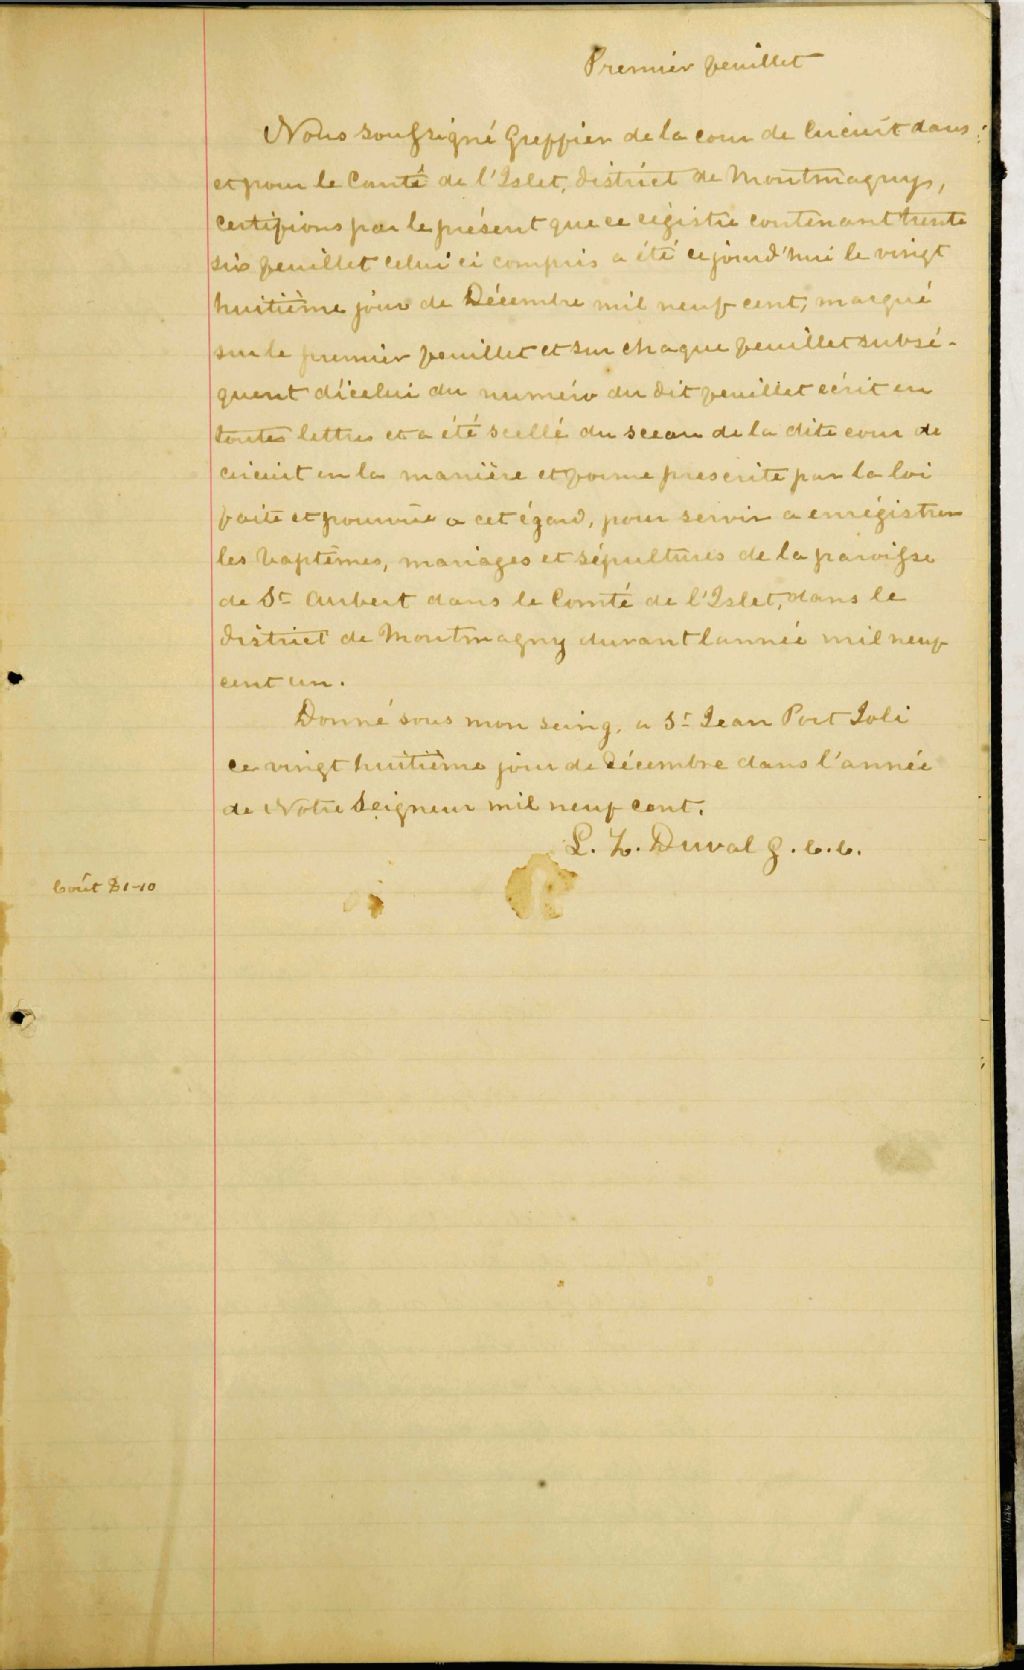 Premier feuillet
Nous soussigné Greffier de la cour de Circuit dans
et pour le Comté de l'Islet, district de Montmagny,
certifions par le présent que ce régistre contenant trente
six feuillet celui ci compris a été cejourd'hui le vingt
huitième jour de Décembre mil neuf cent, marqué
sur le premier feuillet et sur chaque feuillet subsé-
quent d'icelui du numéro du dit feuillet écrit en
toutes lettres et a été scellé du sceau de la dite cour de
circuit en la manière et forme prescrite par la loi
faite et pourvue a cet égard, pour servir a enrégistrer
les baptêmes, mariages et sépultures de la paroisse
de St Aubert dans le Comté de l'Islet, dans le
district de Montmagny durant l'année mil neuf
cent un.
Donné sous mon seing, a St Jean Port Joli
ce vingt huitième jour de Décembre dans l'année
de Notre Seigneur mil neuf cent.
L. Z. Duval g. c. c.
Coût $1-10